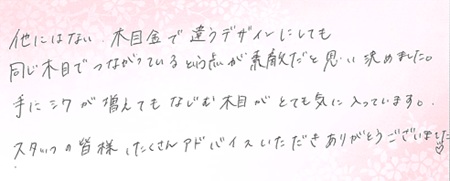 他にはない、木目金で違うデザインにしても
同じ木目でつながっているという点が素敵だと思い決めました。
手にシワが増えてもなじむ木目がとても気に入っています。
スタッフの皆様、たくさんアドバイスいただきありがとうございました♡